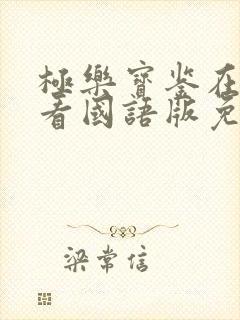 極樂寶鉴在
看國語版免
梁常信